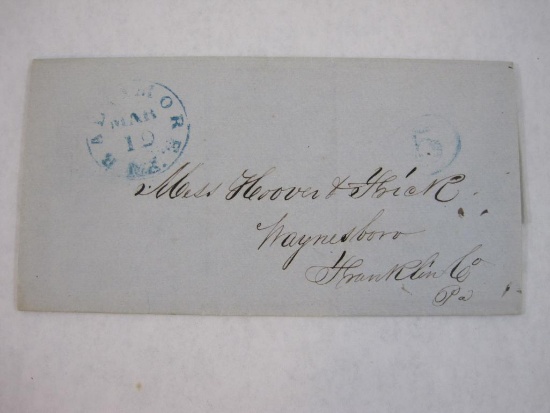 BALTIMORE Md.
MAR
19
5
Mess Hoover & Frick
Waynesboro
Franklin Co
Pa